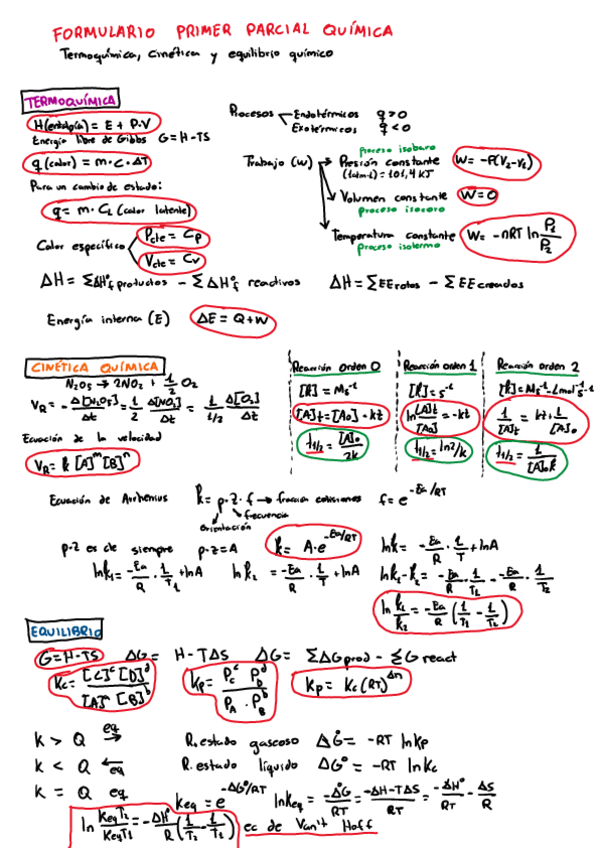 FORMULARIO PRIMER PARCIAL QUÍMICA
Termoquímica, cinética y equilibrio químico
TERMOQUÍMICA
H(entalpía) = E + P·V
Energía libre de Gibbs G=H-TS
q(calor) = m·c·ΔT
Para un cambio de estado:
q = m·CL (calor latente)
Calor específico
Pcte = Cp
Vcte = Cv
Procesos
Endotérmicos q>0
Exotérmicos q<0
Trabajo (w)
Proceso isobaro
Presión constante W=-P(V2-V1)
(1atm·l)=101,4 kJ
Volumen constante W=0
Proceso isocoro
Temperatura constante W=-nRT ln P1/P2
Proceso isotermo
ΔH = ΣΔH°f productos - ΣΔH°f reactivos
ΔH = ΣEErotos - ΣEEcreados
Energía interna (E) ΔE = Q+W
CINÉTICA QUÍMICA
N2O5 → 2NO2 + 1/2 O2
VR = -Δ[N2O5]/Δt = 1/2 Δ[NO2]/Δt = 1/1/2 Δ[O2]/Δt
Ecuación de la velocidad
VR = k [A]^m [B]^n
Reacción orden 0
[k]=M s^-1
[A]t=[Ao]-kt
t1/2 = [A]o/2k
Reacción orden 1
[k]=s^-1
ln [A]t/[Ao] = -kt
t1/2 = ln2/k
Reacción orden 2
[k]=M^-1 s^-1 L mol^-1 s^-1
1/[A]t = kt+1/[A]o
t1/2 = 1/[A]o k
Ecuación de Arrhenius k = p·z·f → fracción colisiones f = e^-Ea/RT
orientación
frecuencia
p·z es cte siempre p·z=A k = A·e^-Ea/RT lnk = -Ea/R · 1/T + lnA
lnk1 = -Ea/R · 1/T1 + lnA lnk2 = -Ea/R · 1/T + lnA lnk1-k2 = -Ea/R · 1/T1 - -Ea/R · 1/T2
ln k1/k2 = -Ea/R (1/T1 - 1/T2)
EQUILIBRIO
G=H-TS ΔG = H-TΔS ΔG = ΣΔG prod - ΣG react
Kc = [C]^c [D]^d/[A]^a [B]^b
Kp = Pc^c PD^d/PA · PB^b
Kp = Kc(RT)^Δn
K > Q eq →
K < Q ← eq
K = Q eq
R. estado gaseoso ΔG° = -RT lnKp
R. estado líquido ΔG° = -RT lnKc
Keq = e^-ΔG°/RT lnKeq = -ΔG°/RT = -ΔH-TΔS/RT = -ΔH°/RT - ΔS/R
ln KeqT2/KeqT1 = -ΔH°/R (1/T2 - 1/T1) ec de Van't Hoff